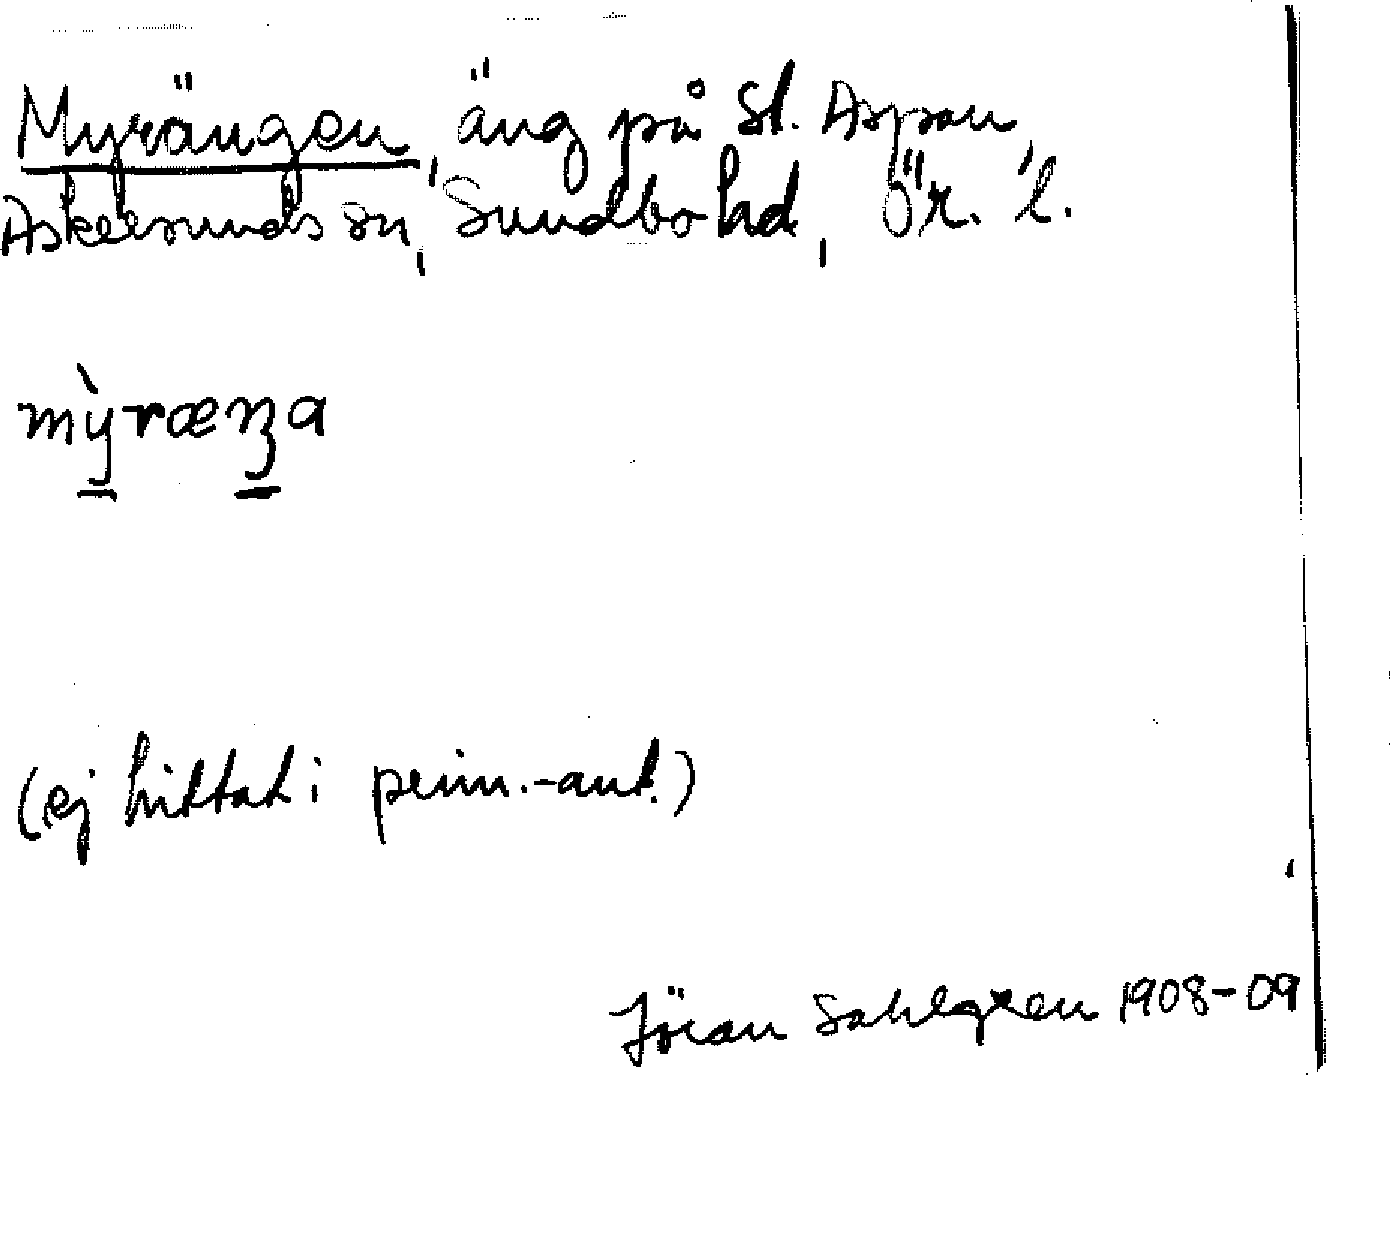 Myrängen, äng på St. Aspön,
Askersunds sn, Sundbo hd, Ör. l.
mỳræŋa
(ej hittat i prim.-ant.)
Jöran Sahlgren 1908-09